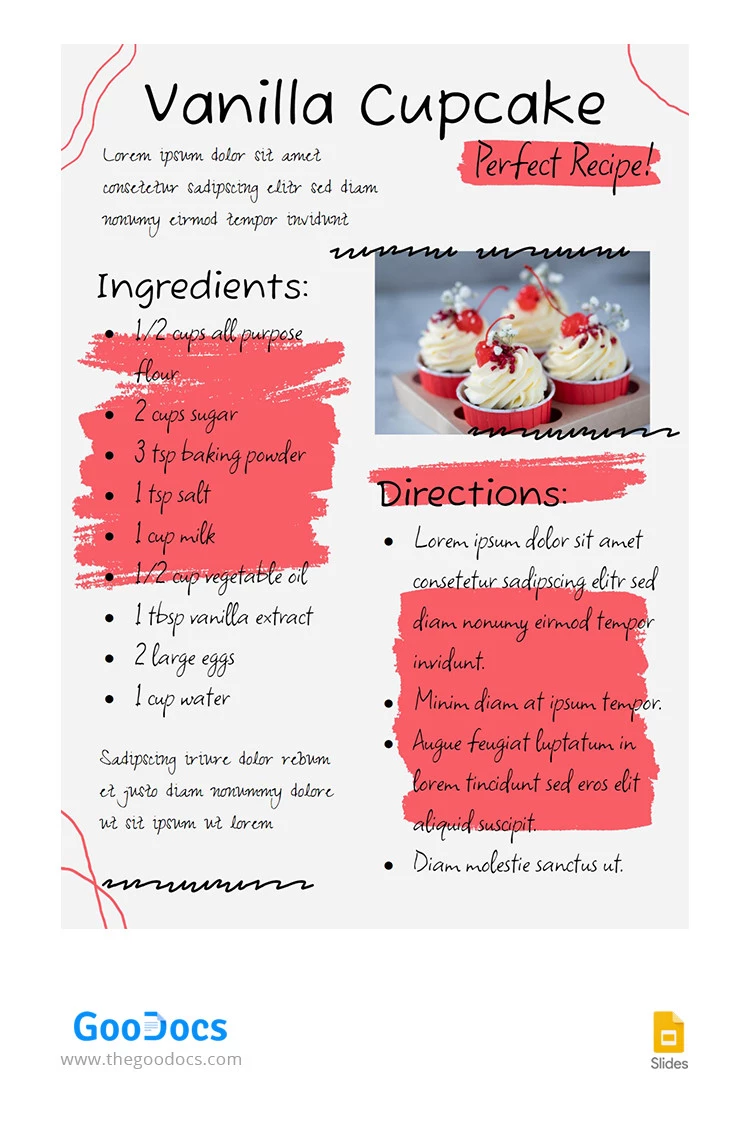 Vanilla Cupcake
Perfect Recipe!
Lorem ipsum dolor sit amet
consetetur sadipscing elitr sed diam
nonumy eirmod tempor invidunt
Ingredients:
• 1/2 cups all purpose
flour
• 2 cups sugar
• 3 tsp baking powder
• 1 tsp salt
• 1 cup milk
• 1/2 cup vegetable oil
• 1 tbsp vanilla extract
• 2 large eggs
• 1 cup water
Sadipscing iriure dolor rebum
et justo diam nonummy dolore
ut sit ipsum ut lorem
Directions:
• Lorem ipsum dolor sit amet
consetetur sadipscing elitr sed
diam nonumy eirmod tempor
invidunt.
• Minim diam at ipsum tempor.
• Augue feugiat luptatum in
lorem tincidunt sed eros elit
aliquid suscipit.
• Diam molestie sanctus ut.
GooDocs
www.thegoodocs.com
Slides